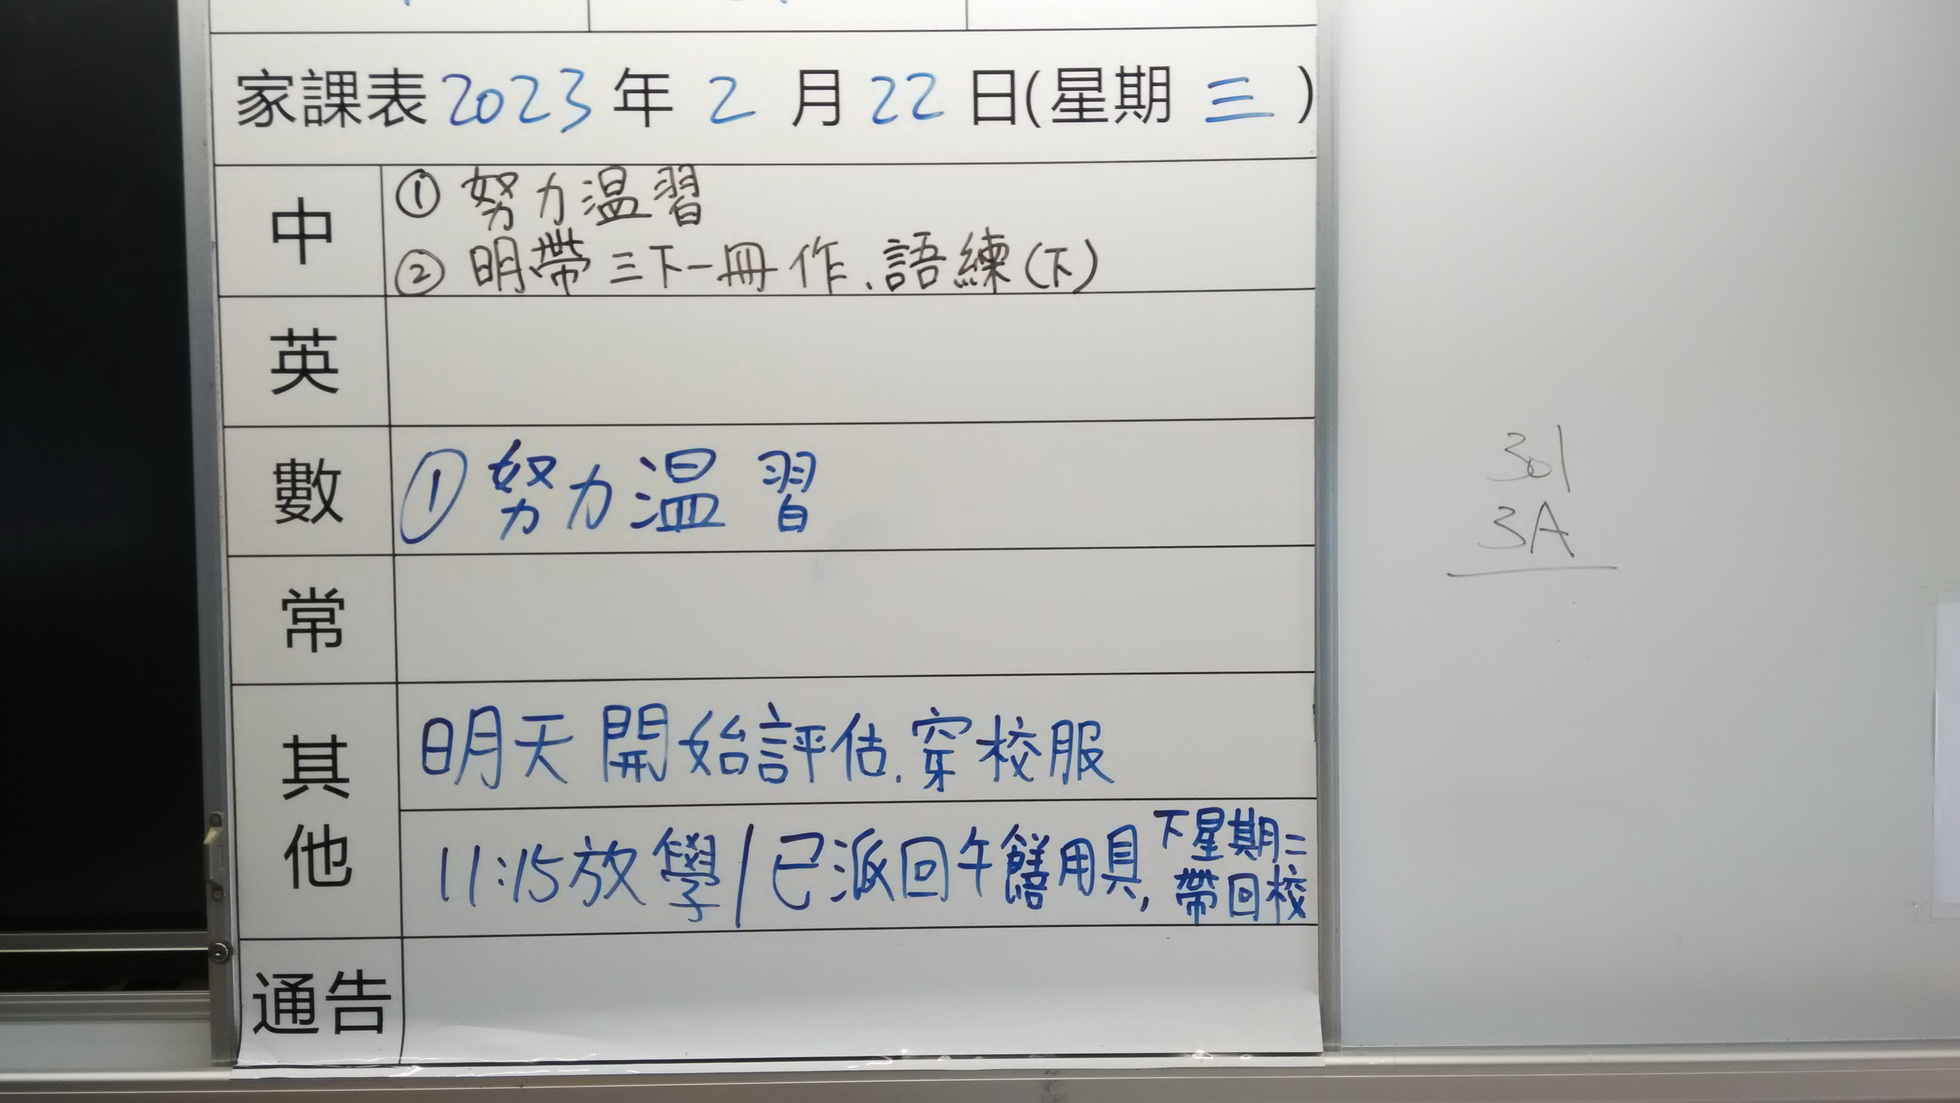 家課表 2023 年 2 月 22 日(星期 三 )
中
① 努力温習
② 明帶三下一冊作、語練(下)
英
數
① 努力温習
常
其他
明天開始評估、穿校服
11:15放學/已派回午膳用具,下星期二
帶回校
通告
301
3A